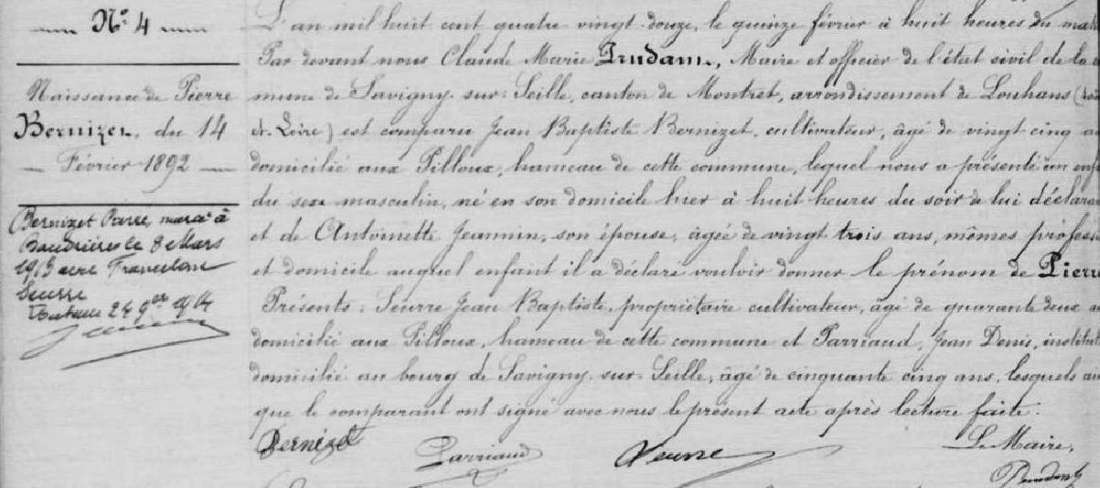 N° 4
Naissance de Pierre
Bernizet, du 14
Février 1892
Bernizet Pierre, marié à
Baudrières le 8 Mars
1913 avec
Seurre
L'an mil huit cent quatre vingt-douze, le quinze février à huit heures du mat
Par devant nous Claude Marie Prudant, Maire et officier de l'état civil de la
mune de Savigny-sur-Seille, canton de Montret, arrondissement de Louhans (
et-Loire) est comparu Jean Baptiste Bernizet, cultivateur, âgé de vingt cinq a
domicilié aux Pilloux, hameau de cette commune, lequel nous a présenté un enf
du sexe masculin, né en son domicile hier à huit heures du soir de lui déclara
et de Antoinette Jeannin, son épouse, âgée de vingt trois ans, mêmes profess
et domicile auquel enfant il a déclaré vouloir donner le prénom de Pierre
Présents : Seurre Jean Baptiste, propriétaire cultivateur, âgé de quarante deux a
domicilié aux Pilloux, hameau de cette commune et Parriaud, Jean Denis, institut
domicilié au bourg de Savigny-sur-Seille, âgé de cinquante cinq ans, lesquels ain
que le comparant ont signé avec nous le présent acte après lecture faite.
Bernizet Parriaud Seurre Le Maire,